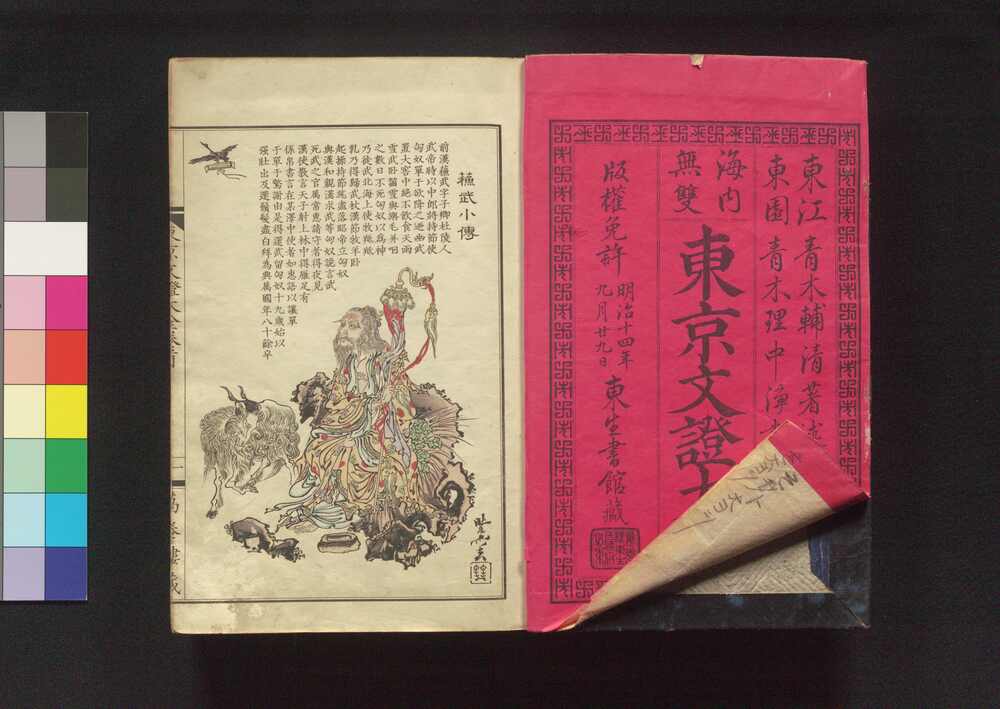 東江 青木輔清著述
東園 青木理中浄書
海内
無雙
東京文證大
版權免許
明治十四年
九月廿九日
東生書館藏
蘓武小傳
前漢蘓武字子卿杜陵人
武帝時以中郎將持節使
匈奴單于欲降之迺幽武
置大窖中絶不飲食天雨
雪武臥齧雪與旃毛并咽
之數日不死匈奴以爲神
乃徙武北海上使牧羝羝
乳乃得歸武杖漢節牧羊臥
起操持節旄盡落昭帝立匈奴
與漢和親漢求武等匈奴詭言武
死武之官屬常惠請守者得夜見
漢使教言天子射上林中得雁足有
係帛書言在某澤中使者如惠語以讓單
于單于驚謝由是得還武留匈奴十九歳始以
强壯出及還鬚髮盡白拜爲典屬國年八十餘卒